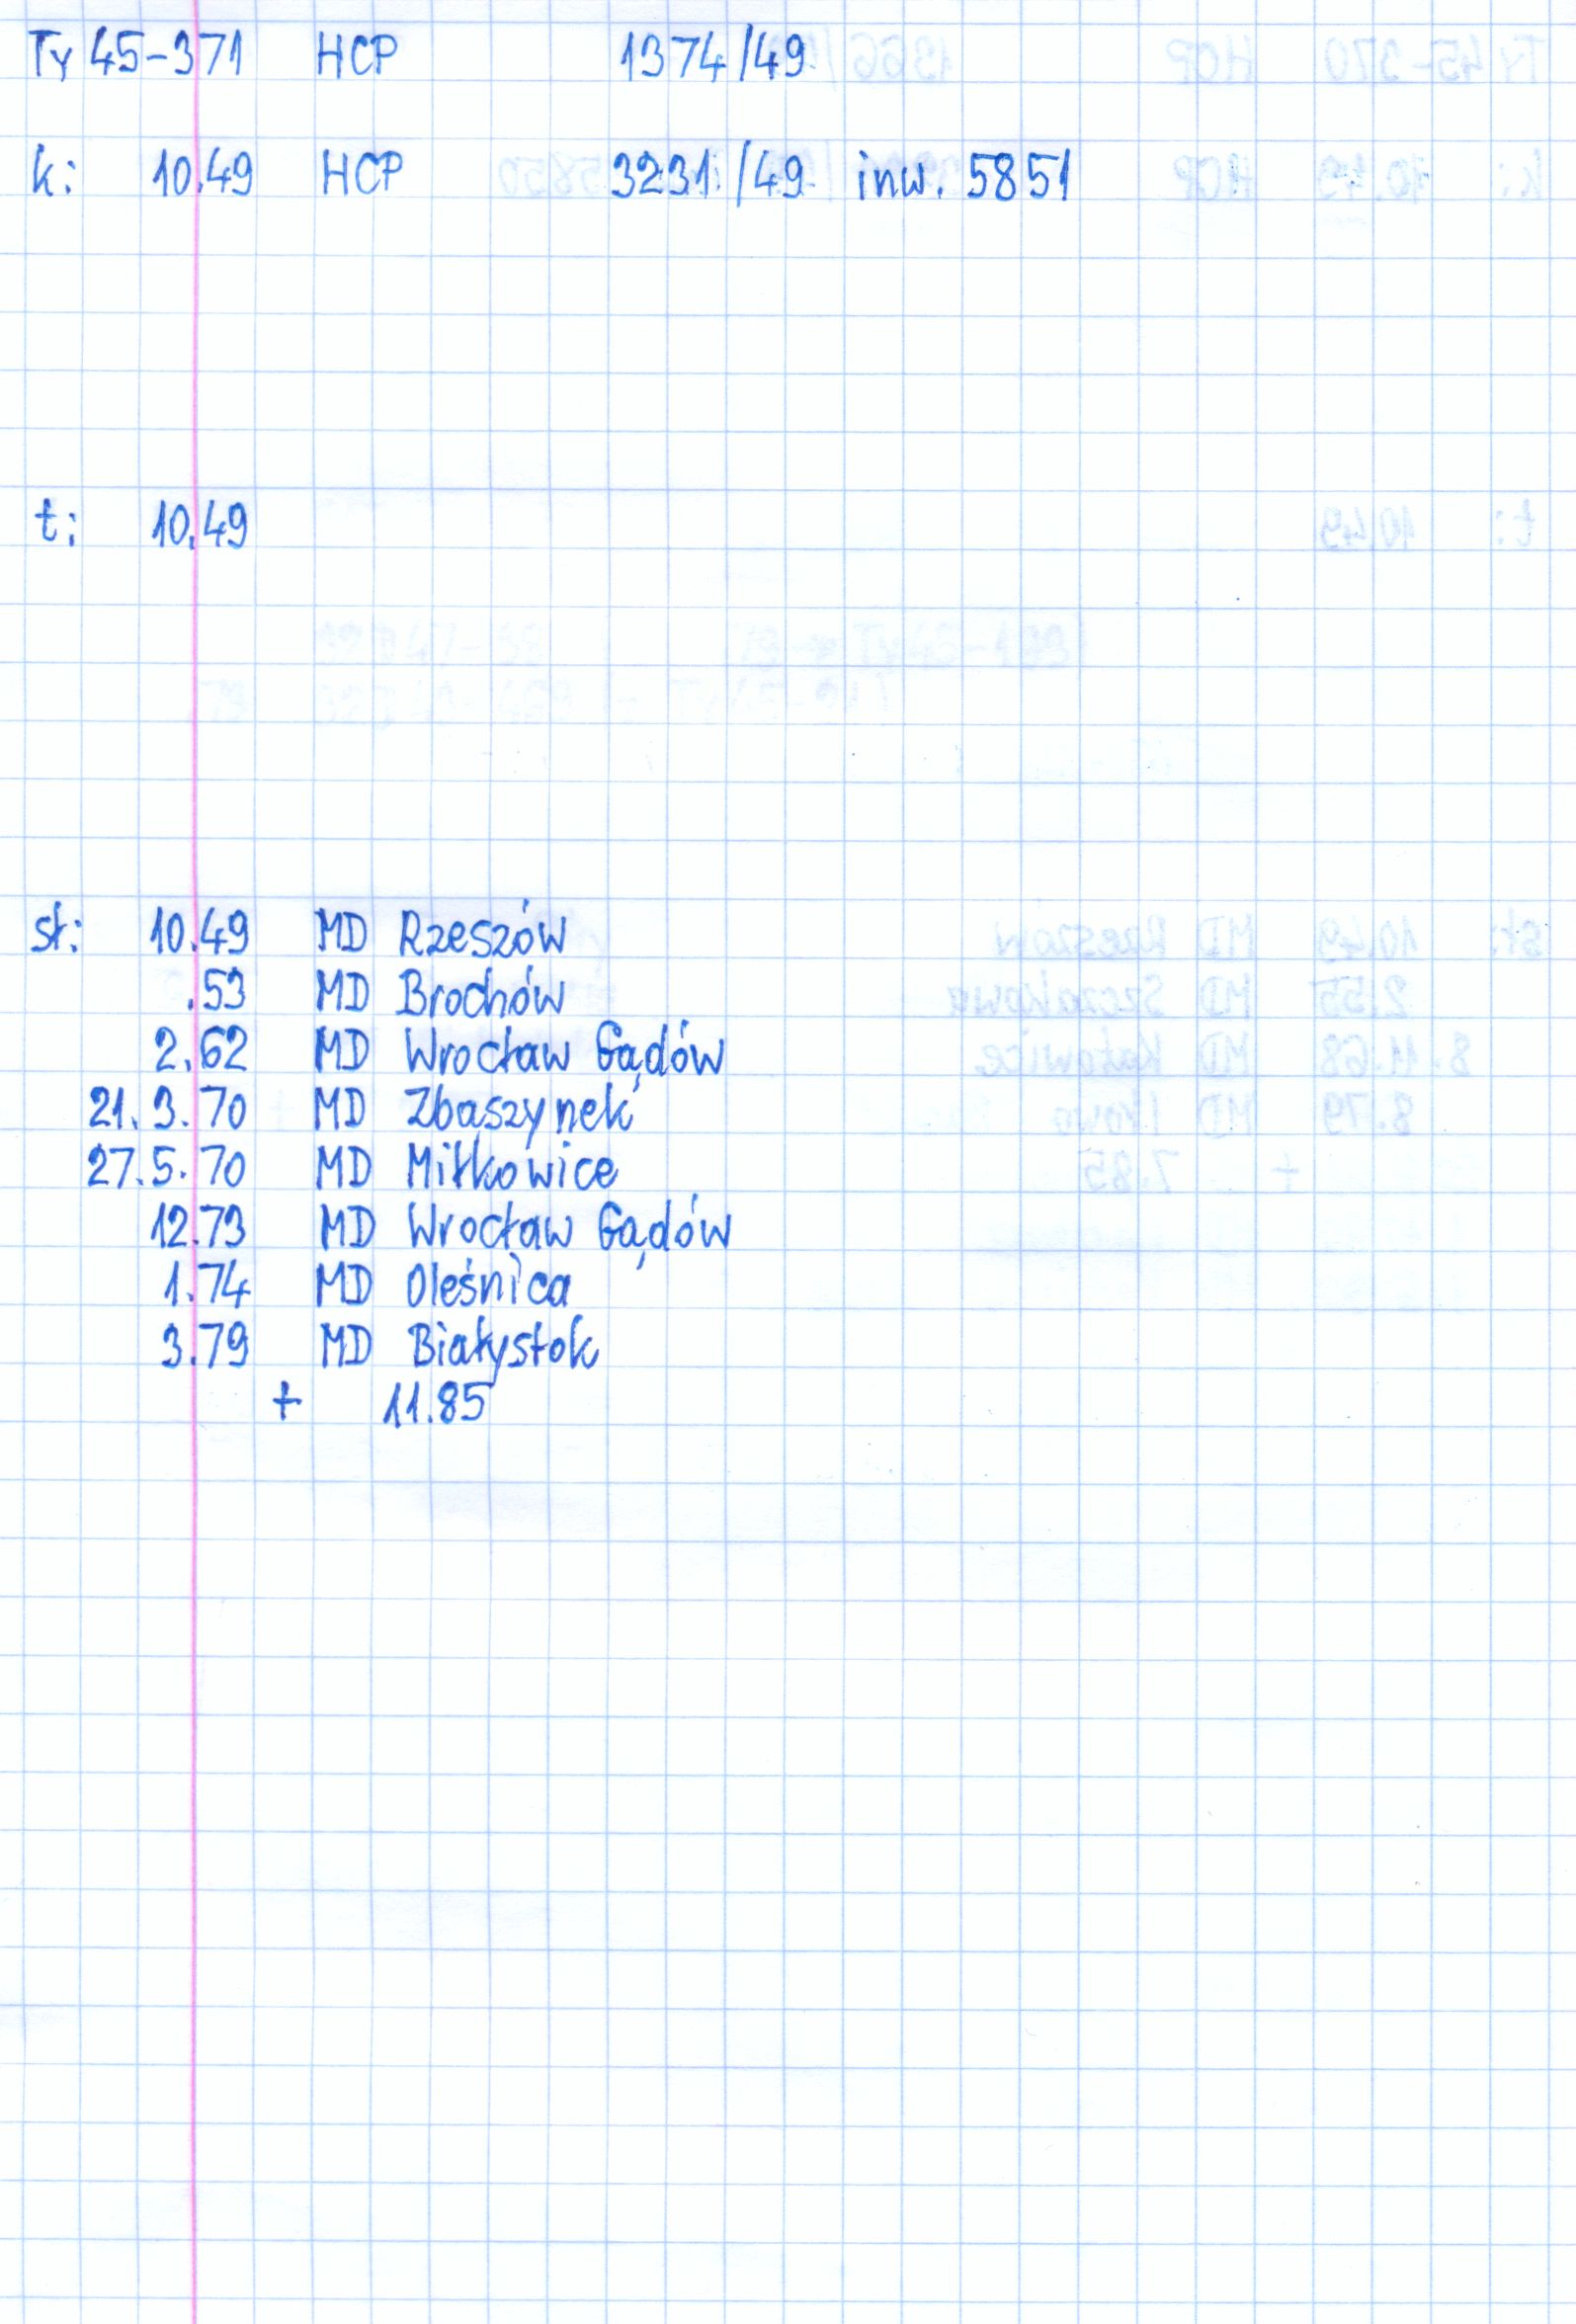 Ty 45-371 HCP 1374/49
k: 10.49 HCP 3231/49 inw. 5851
t: 10.49
st: 10.49 MD Rzeszów
.53 MD Brochów
2.62 MD Wrocław Gądów
21.3.70 MD Zbąszynek
27.5.70 MD Miłkowice
12.73 MD Wrocław Gądów
1.74 MD Oleśnica
3.79 MD Białystok
+ 11.85